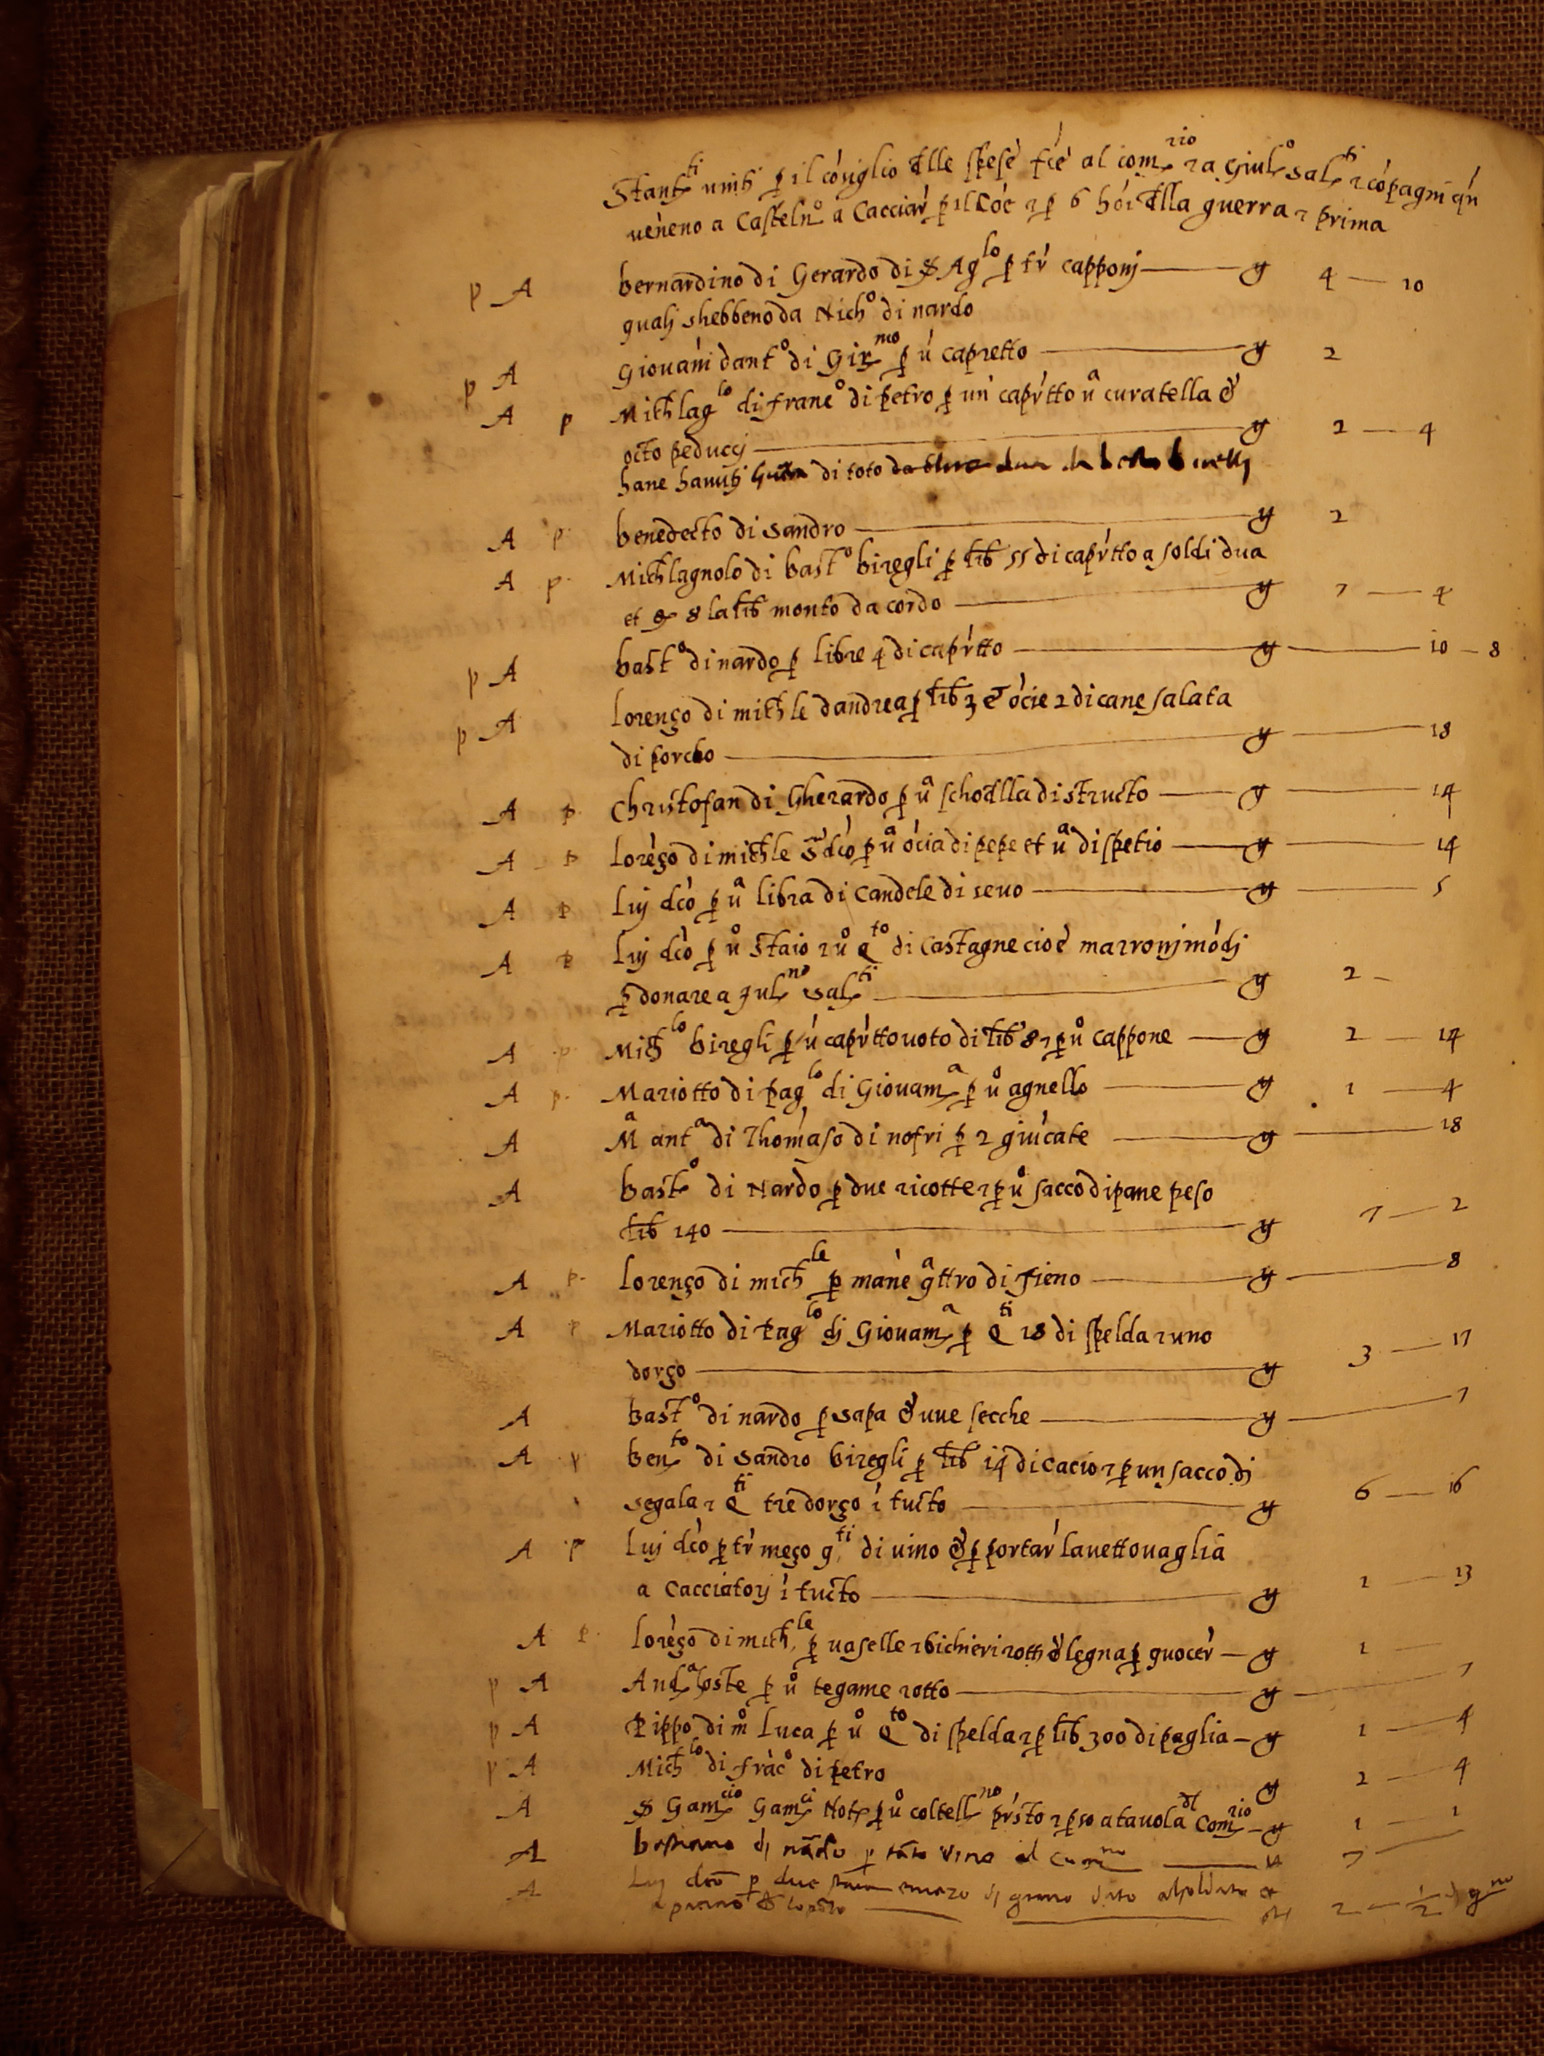 Stant.ti uniti p il cósiglio dlle spese fcé al com.rio 2 a Giul.o Sal.ti 2 cópagni qń
uéneno a Casteln.o a Cacciar p il Cóe 2 p 6 hói dlla guerra 2 prima
p A bernardino di Gerardo di S Ag.lo p tr capponj — g 4 — 10
qualj shebbeno da Nich.o di nardo
p A Giouáni dant.o di Gir.mo p ú capretto — g 2
A p Michlag.lo di franc.o di petro p un caprtto ua curatella &
octo peduccj — g 2 — 4
hane hauuti di toto
A p benedecto di Sandro — g 2
A p Michlagnolo di bast.o biregli p lib 55 di caprtto a soldi dua
et 8 la lib monto dacordo — g 7 — 4
p A bast.o di nardo p libre 4 di caprtto — g — 10 — 8
p A lorenzo di michle dandrea p lib 3 e ócie 2 di carne salata
di porcho — g — 18
A p Christofan di Gherardo p ua schodlla distructo — g — 14
A p lorézo di michle dcó p ua ócia di pepe et ua di spetio — g — 14
A p luj dcó p ua libra di Candele di seuo — g — 5
A p luj dcó p uo staio 2 uo Q.to di Castagne cioé marronj módj
p donare a Jul.no Sal.ti — g 2 —
A p Mich.lo biregli p ú caprtto uoto di lib 8 2 p uo cappone — g 2 — 14
A p Mariotto di pag.lo di Giouam.a p uo agnello — g 1 — 4
A Ma ant.a di Thomaso di nofri p 2 giúcate — g — 18
A bast.o di Nardo p due ricotte 2 p uo sacco di pane peso
lib 140 — g 7 — 2
A p lorenzo di mich.le p mane qattro di fieno — g — 8
A p Mariotto di pag.lo dj Giouam.a p Q.ti 18 di spelda 2 uno
dorzo — g 3 — 17
A bast.o di nardo p sapa & uue secche — g — 7
A p ben.to di Sandro biregli p lib 14 di cacio 2 p un sacco dj
segala 2 Q.ti tre dorzo í tucto — g 6 — 16
A p luj dcó p tr mezo q.ti di uino & p portar la uettouaglia
a Cacciatorj í tucto — g 1 — 13
A p lorézo di mich.le p uaselle 2 bichieri rotti & legna p quocer — g 1 —
p A And.a hoste p uo tegame rotto — g — 7
p A Pippo di mo luca p uo Q.to di spelda 2 p lib 300 di paglia — g 1 — 4
p A Mich.lo di fráco di petro g 2 — 4
A S Gam.cio Gam.ci Not. p uo coltell.no prsto 2 pso a tauola dl Com.rio — g 1 — 1
A bastiano dj nardo p tato vino al — 7
A Luj dcó p due di grano dato 2 — 1/2